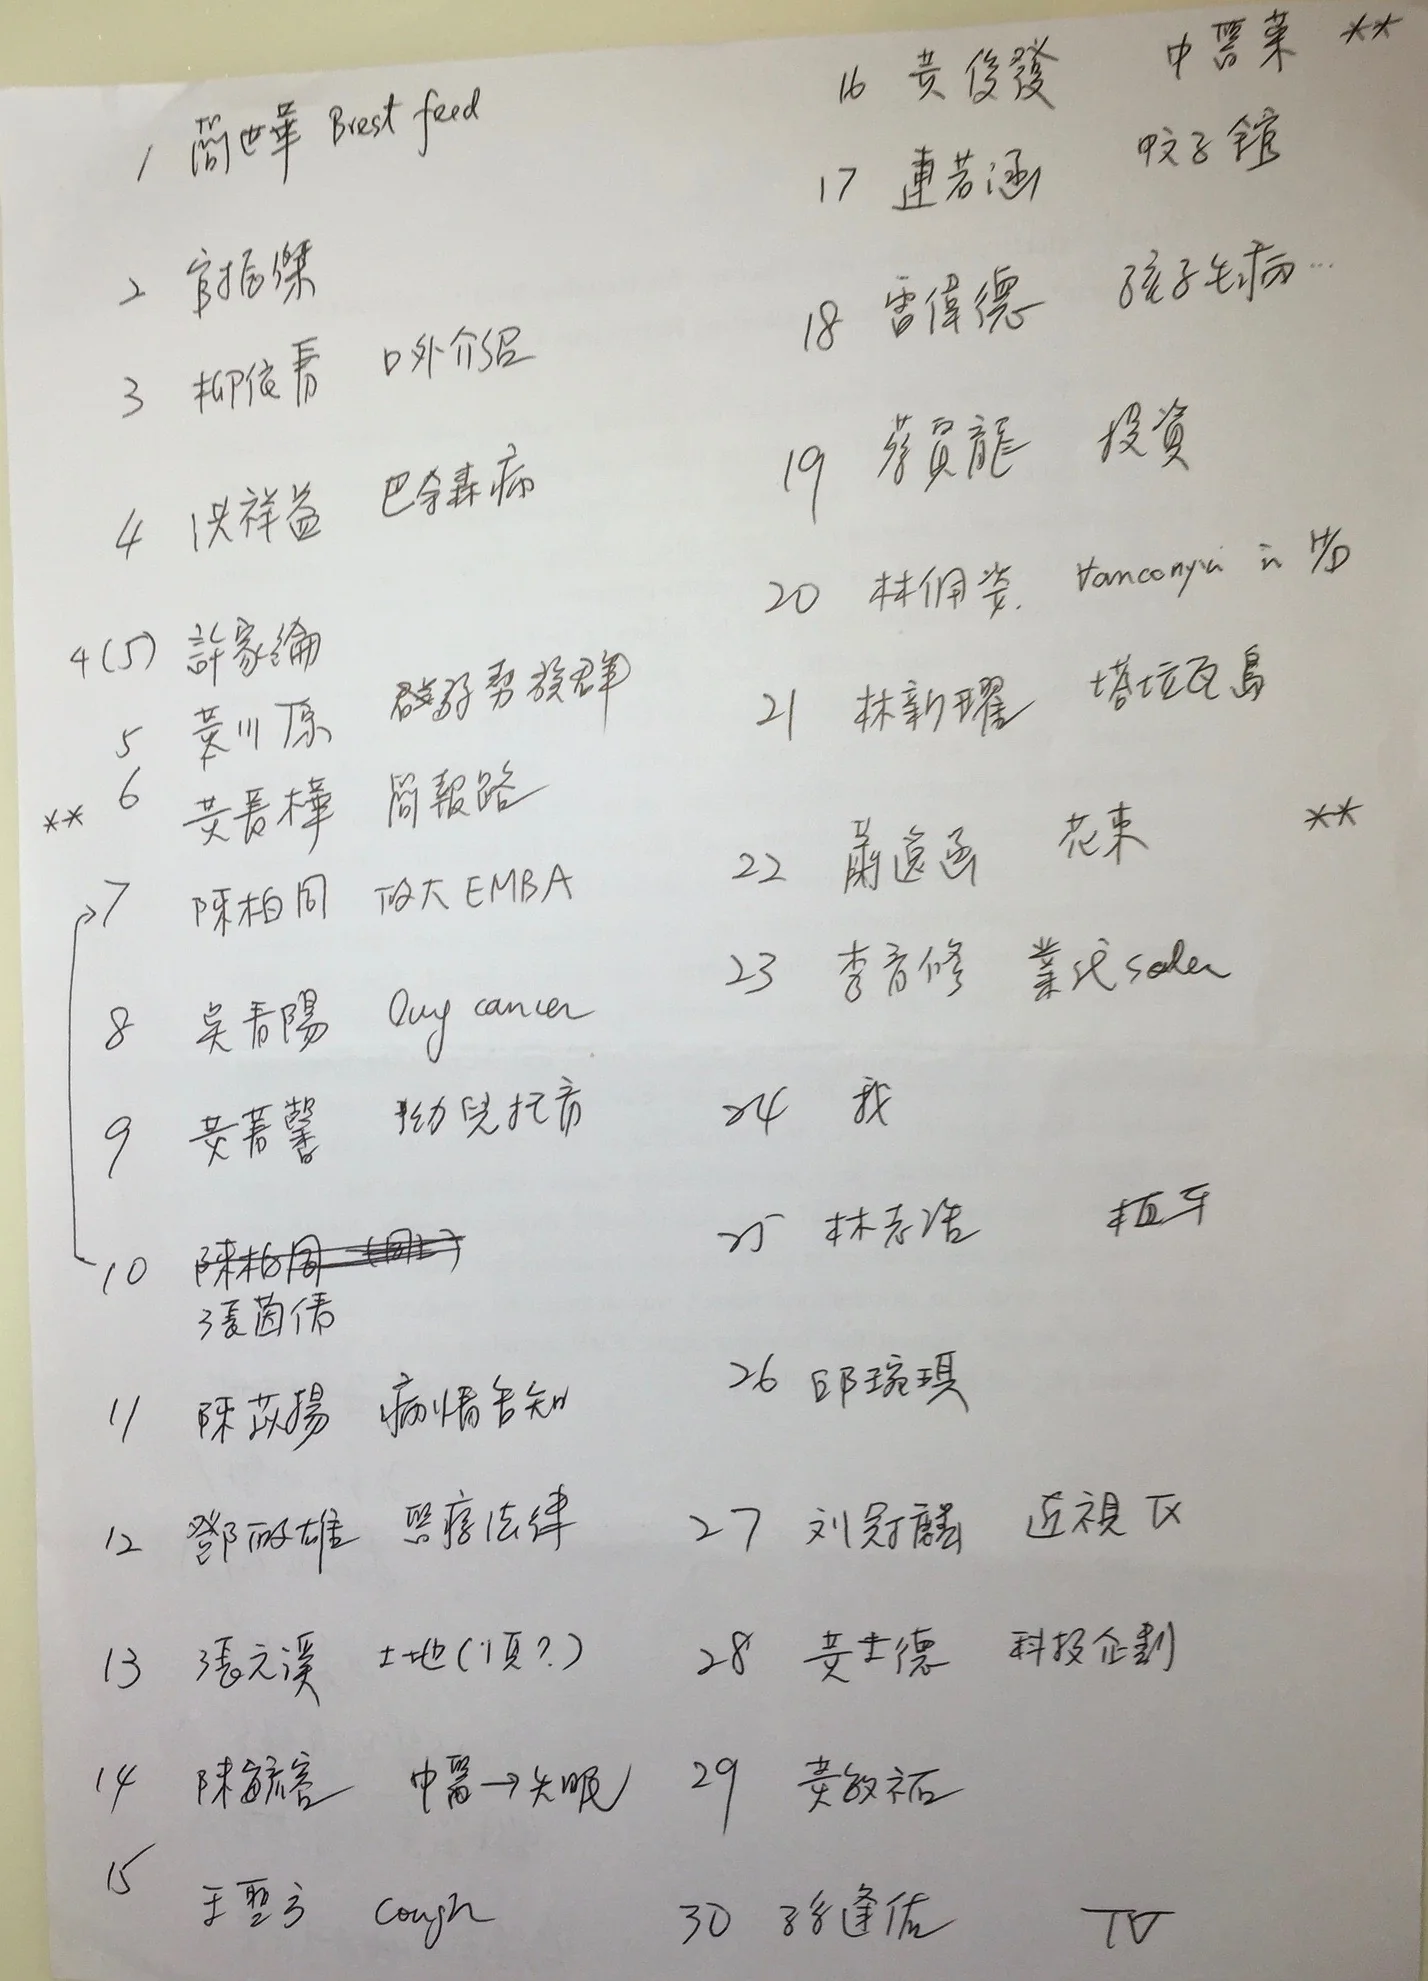 1 簡世華 Brest feed
2 官振傑
3 柳依青 口外介紹
4 洪祥益 巴金森病
4(5) 許家綸
5 黃川原 弱勢族群
** 6 黃長樺 簡報路
7 陳柏同 政大EMBA
8 吳青陽 Lung cancer
9 黃菁馨 幼兒托育
10 陳柏同 (同上)
張茵倩
11 陳苡揚 病情告知
12 鄧政雄 醫療法律
13 張元溪 土地(1頁?)
14 陳毓容 中醫→失眠
15 王聖方 cough
16 黃俊發 中醫藥 **
17 連若涵 蚊子館
18 雷偉德 孩子生病...
19 蔡賀龍 投資
20 林佩姿 Vancomycin in HD
21 林新曜 塔拉瓦島
22 蕭遠函 花束 **
23 李育修 業代 sales
24 我
25 林志浩 植牙
26 邱琬琪
27 刘冠麟 近視 Tx
28 黃士德 科技企劃
29 黃敏祐
30 孫逢佑 TV